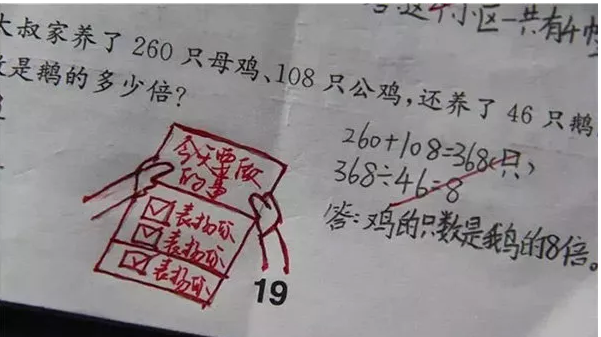 这个小区一共有4幢
大叔家养了260只母鸡、108只公鸡，还养了46只鹅
数是鹅的多少倍？
260+108=368(只)
368÷46=8
答：鸡的只数是鹅的8倍。
今天要做
的事
表扬你
表扬你
表扬你
19